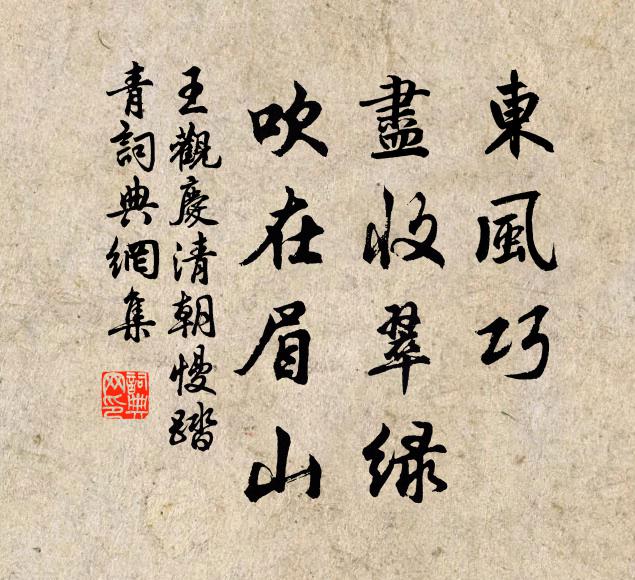 東風巧
盡收翠綠
吹在眉山
王觀慶清朝慢踏
青詞典網集
詞典網印